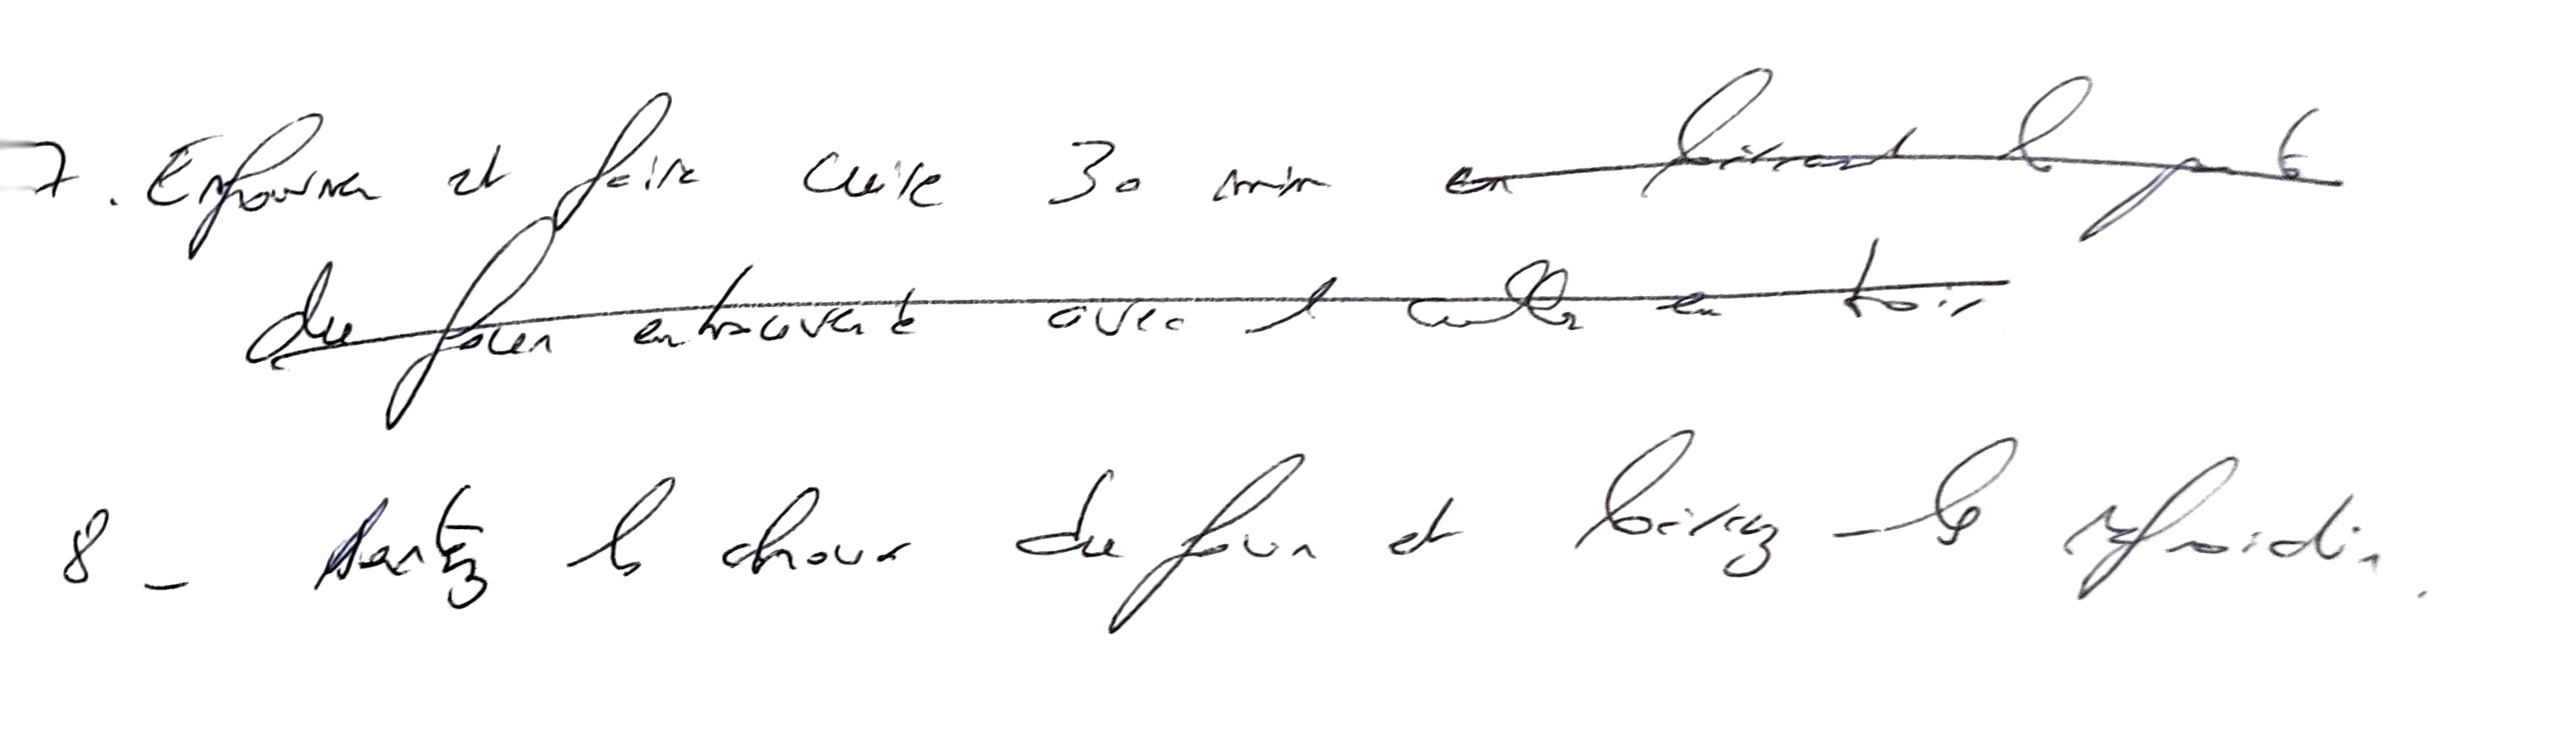 7. Enfourner et faire cuire 30 min en laissant la porte
du four entrouverte avec 1 cuillère en bois
8 - Sortez les choux du four et laissez-les refroidir.